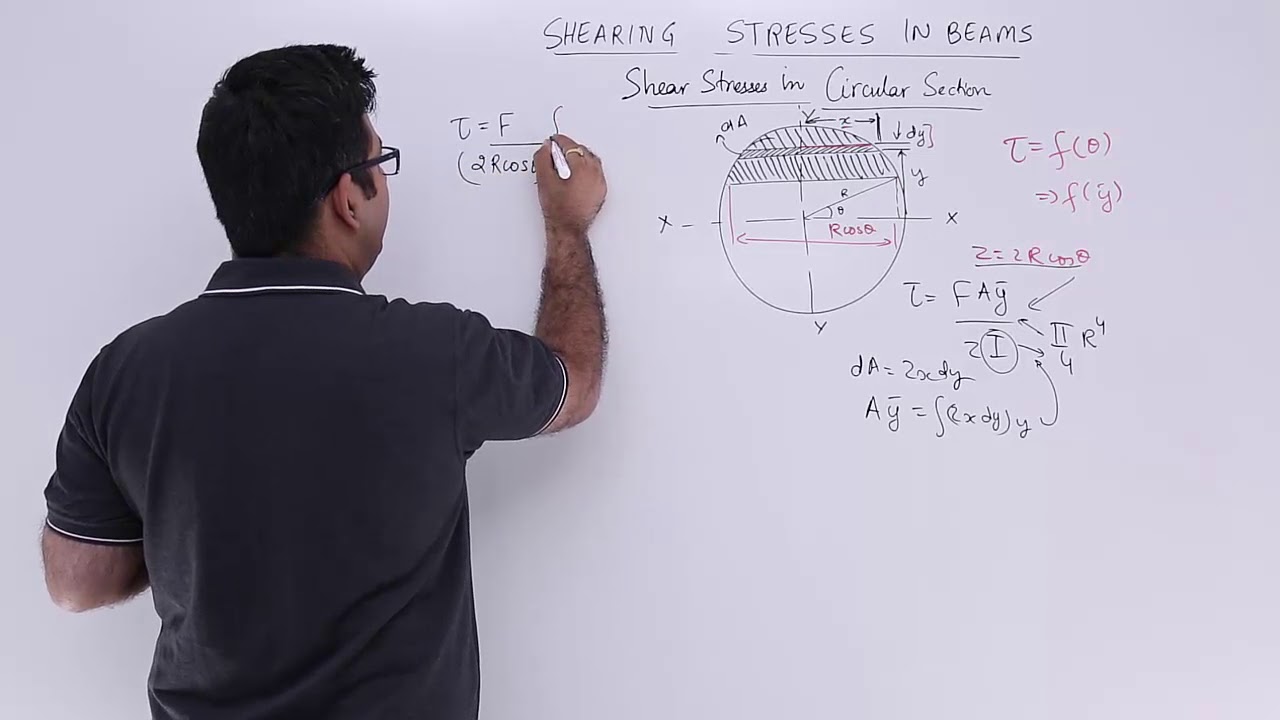 SHEARING STRESSES IN BEAMS
Shear Stresses in Circular Section
τ = F ∫
(2Rcosθ
dA
Y
x
dy
y
R
θ
X
X
Rcosθ
Y
τ = f(θ)
⇒ f(ȳ)
Z = 2Rcosθ
τ = FAȳ
ZI
π R⁴
4
dA = 2xdy
Aȳ = ∫(2xdy)y